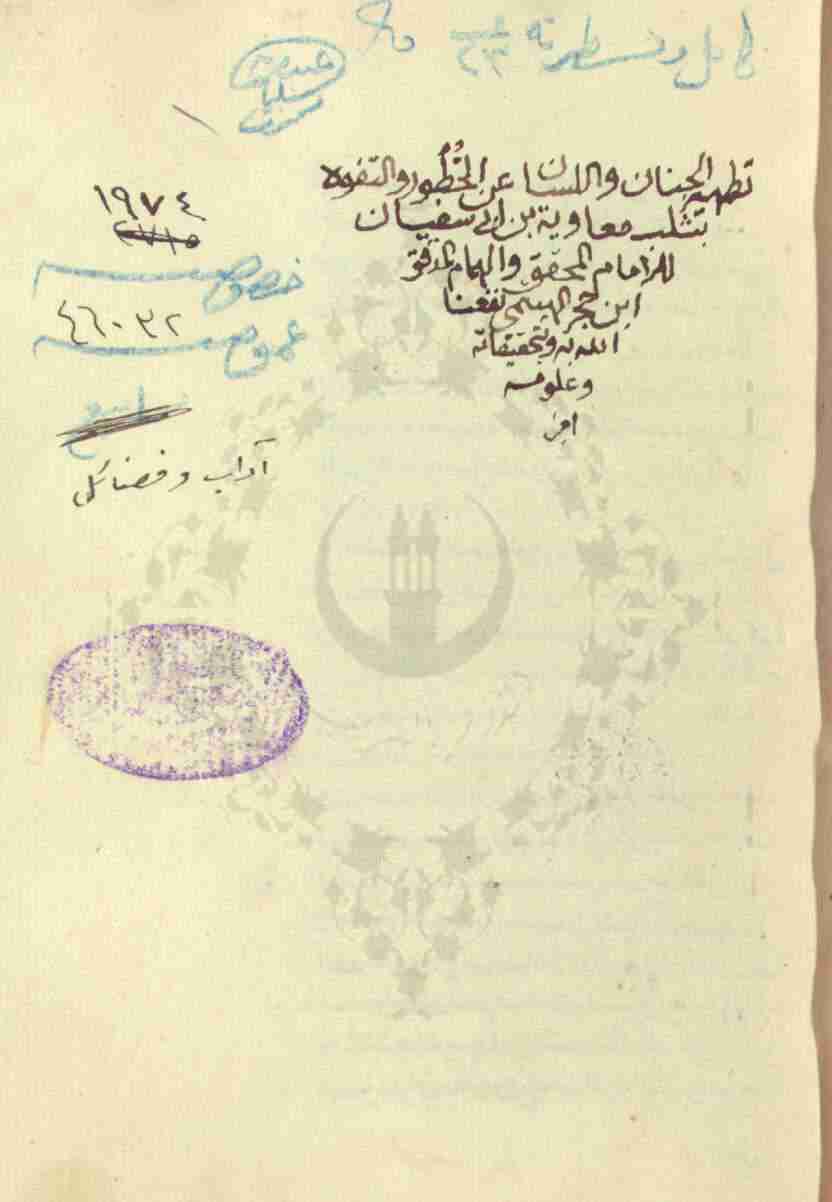 كامل ومسطرته ٢٣
تطهير الجنان واللسان عن الخُطُور والتفوه
بثلب معاوية بن ابي سفيان
للامام المحقق والهمام المدقق
ابن حجر الهيتمي نفعنا
الله به وبتحقيقاته
وعلومه
امين
١٩٧٤
٢٧١٥
خصوصية
٤٦٠٣٢
عمومية
آداب وفضائل